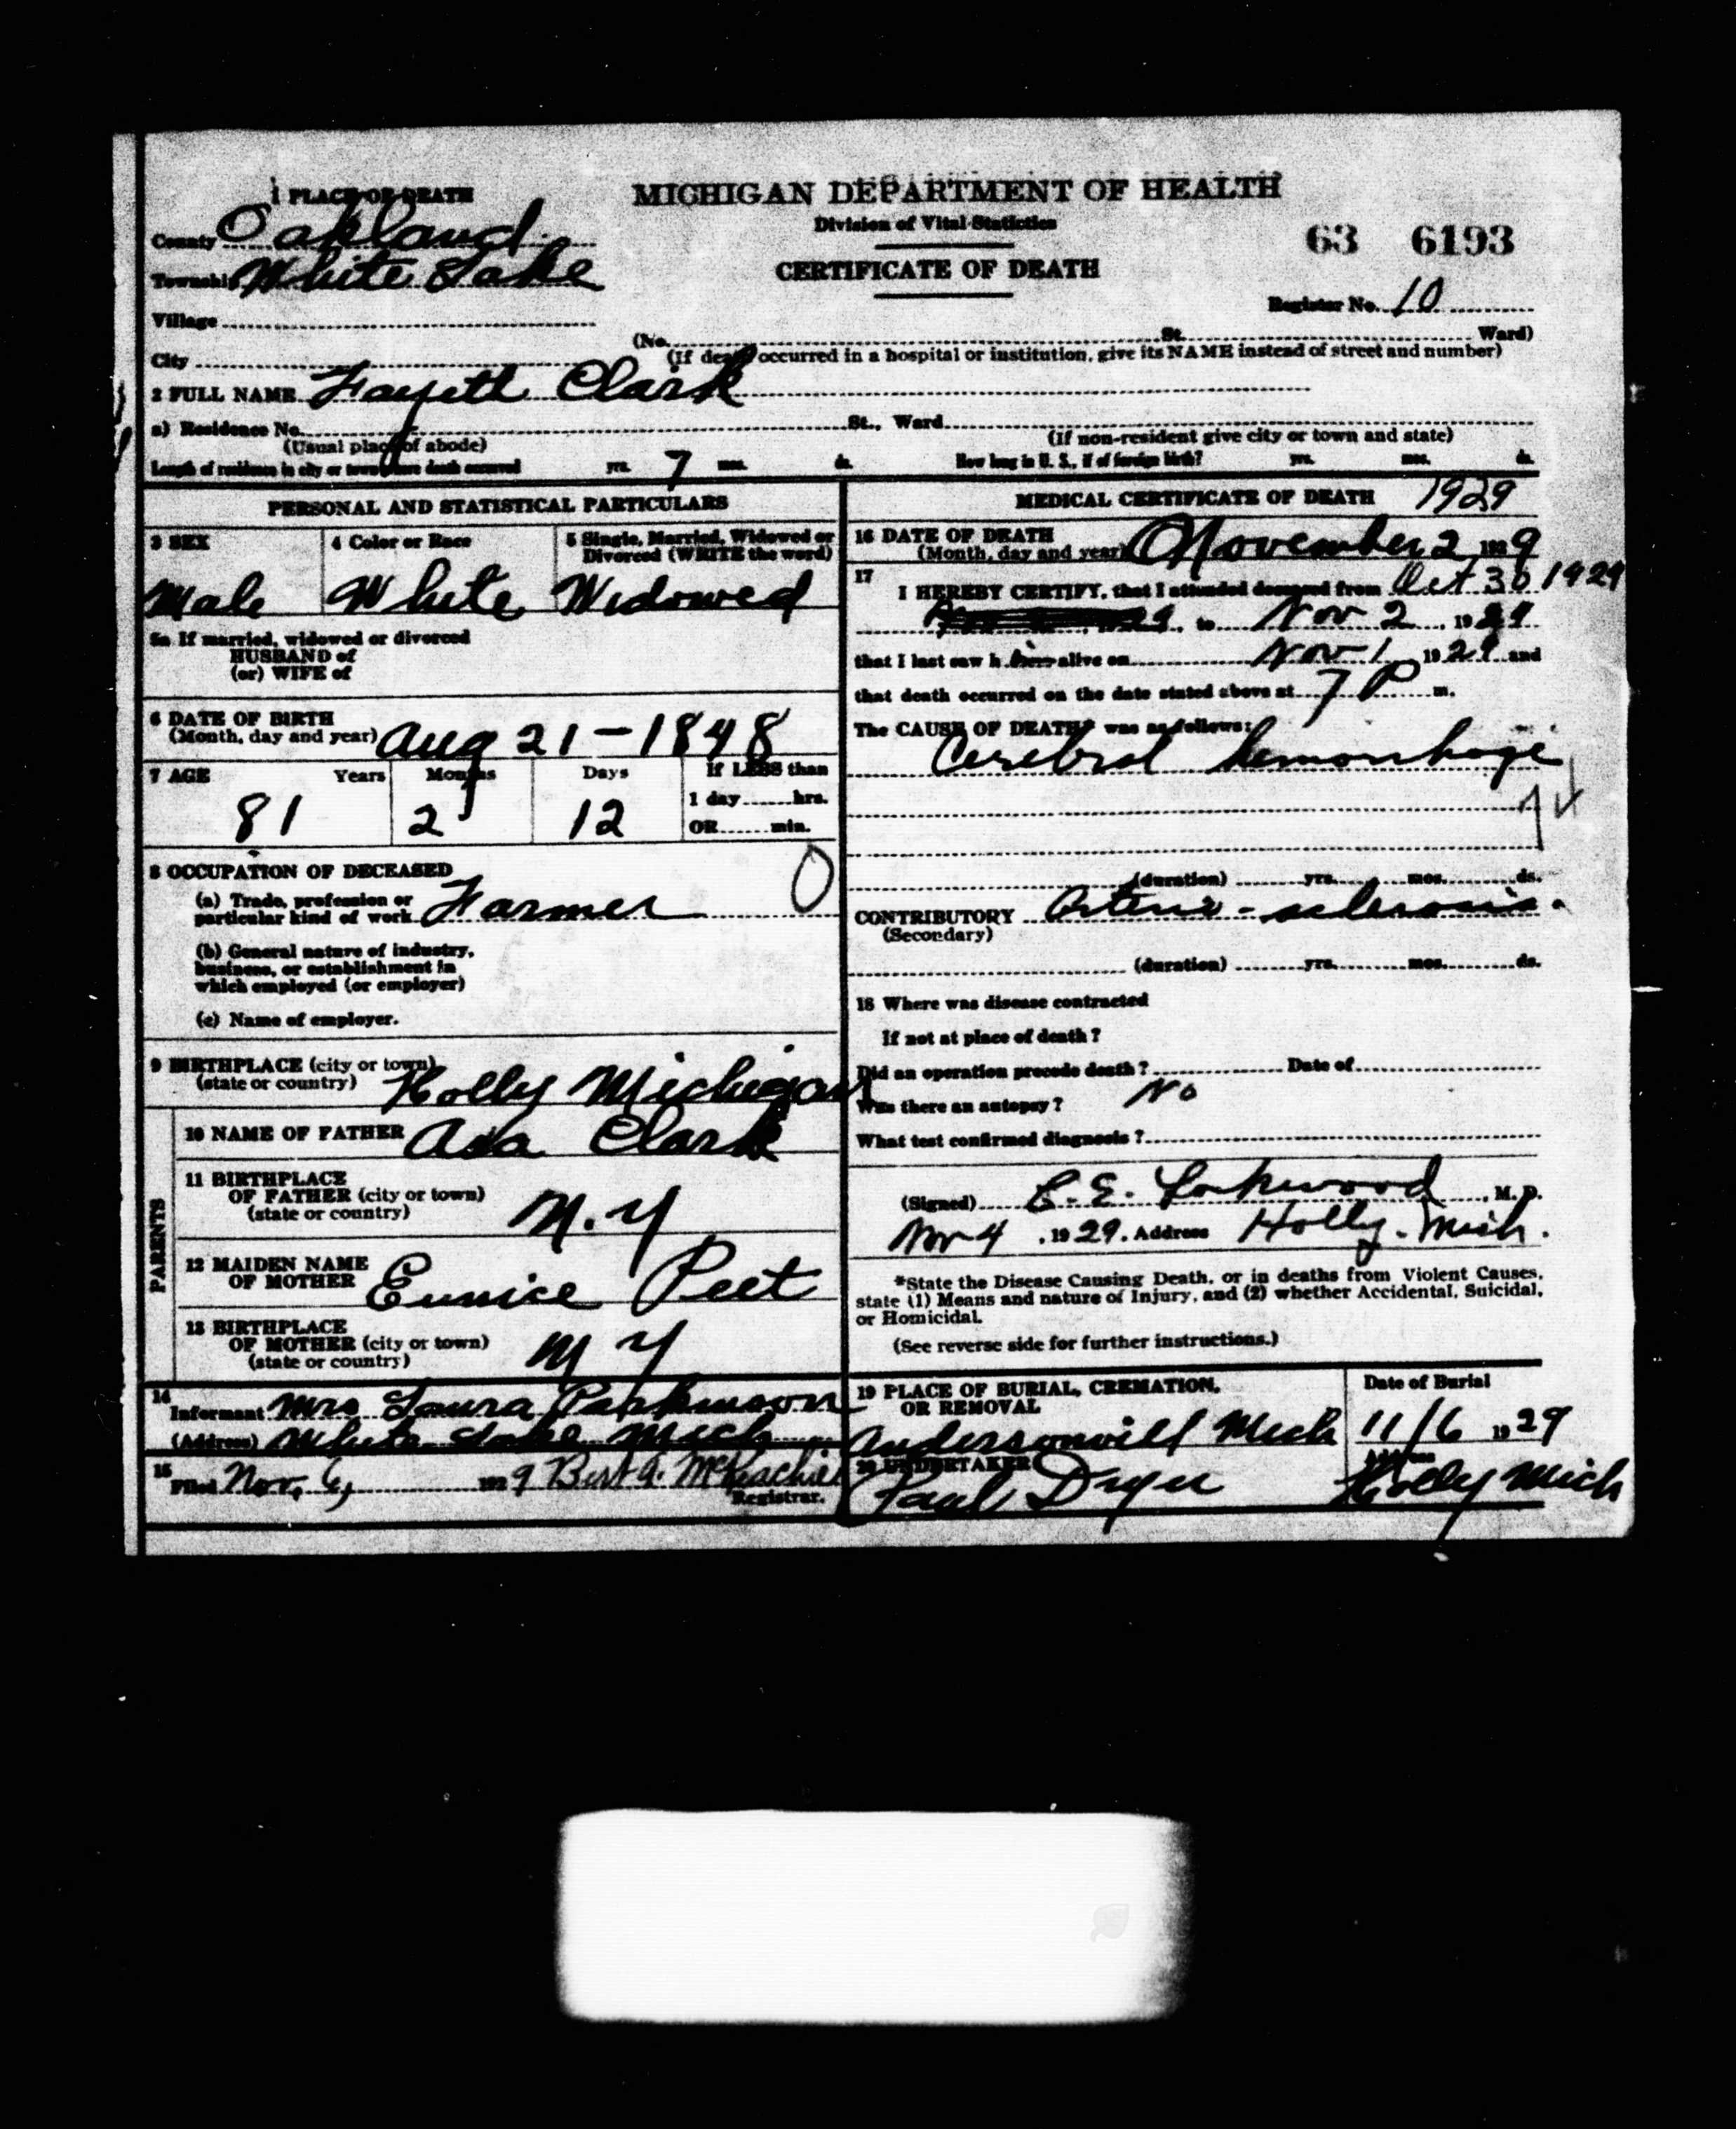 1 PLACE OF DEATH
MICHIGAN DEPARTMENT OF HEALTH
Division of Vital Statistics
County Oakland
63 6193
Township White Lake
CERTIFICATE OF DEATH
Register No. 10
Village
(No. St. Ward)
City
(If death occurred in a hospital or institution, give its NAME instead of street and number)
2 FULL NAME Fayeth Clark
a) Residence No. St., Ward
(Usual place of abode)
(If non-resident give city or town and state)
Length of residence in city or town where death occurred yrs. 7 mos. ds. How long in U. S., if of foreign birth? yrs. mos. ds.
PERSONAL AND STATISTICAL PARTICULARS
3 SEX
4 Color or Race
5 Single, Married, Widowed or Divorced (WRITE the word)
Male White Widowed
5a If married, widowed or divorced
HUSBAND of
(or) WIFE of
6 DATE OF BIRTH
(Month, day and year) Aug 21 - 1848
7 AGE Years Months Days If LESS than
81 2 12 1 day hrs.
OR min.
8 OCCUPATION OF DECEASED 0
(a) Trade, profession or
particular kind of work Farmer
(b) General nature of industry,
business, or establishment in
which employed (or employer)
(c) Name of employer.
9 BIRTHPLACE (city or town)
(state or country) Holly Michigan
PARENTS
10 NAME OF FATHER Asa Clark
11 BIRTHPLACE
OF FATHER (city or town)
(state or country) N.Y
12 MAIDEN NAME
OF MOTHER Eunice Peet
13 BIRTHPLACE
OF MOTHER (city or town)
(state or country) N Y
14
Informant Mrs Laura Parkinson
(Address) White Lake Mich
15
Filed Nov. 6, 1929 Bert A. McKeachie
Registrar.
MEDICAL CERTIFICATE OF DEATH 1929
16 DATE OF DEATH
(Month, day and year) November 2 1929
17
I HEREBY CERTIFY, that I attended deceased from Oct 30 1929
to Nov 2, 1929
that I last saw h im alive on Nov 1 1929 and
that death occurred on the date stated above at 7 P m.
The CAUSE OF DEATH* was as follows:
Cerebral hemorrhage
(duration) yrs. mos. ds.
CONTRIBUTORY Arterio-sclerosis.
(Secondary)
(duration) yrs. mos. ds.
18 Where was disease contracted
If not at place of death?
Did an operation precede death? Date of
Was there an autopsy? No
What test confirmed diagnosis?
(Signed) C. E. Lockwood, M. D.
Nov 4, 1929. Address Holly. Mich.
*State the Disease Causing Death, or in deaths from Violent Causes,
state (1) Means and nature of Injury, and (2) whether Accidental, Suicidal,
or Homicidal.
(See reverse side for further instructions.)
19 PLACE OF BURIAL, CREMATION,
OR REMOVAL
Date of Burial
Andersonvill Mich 11/6 1929
20 UNDERTAKER
Paul Dryer Holly Mich